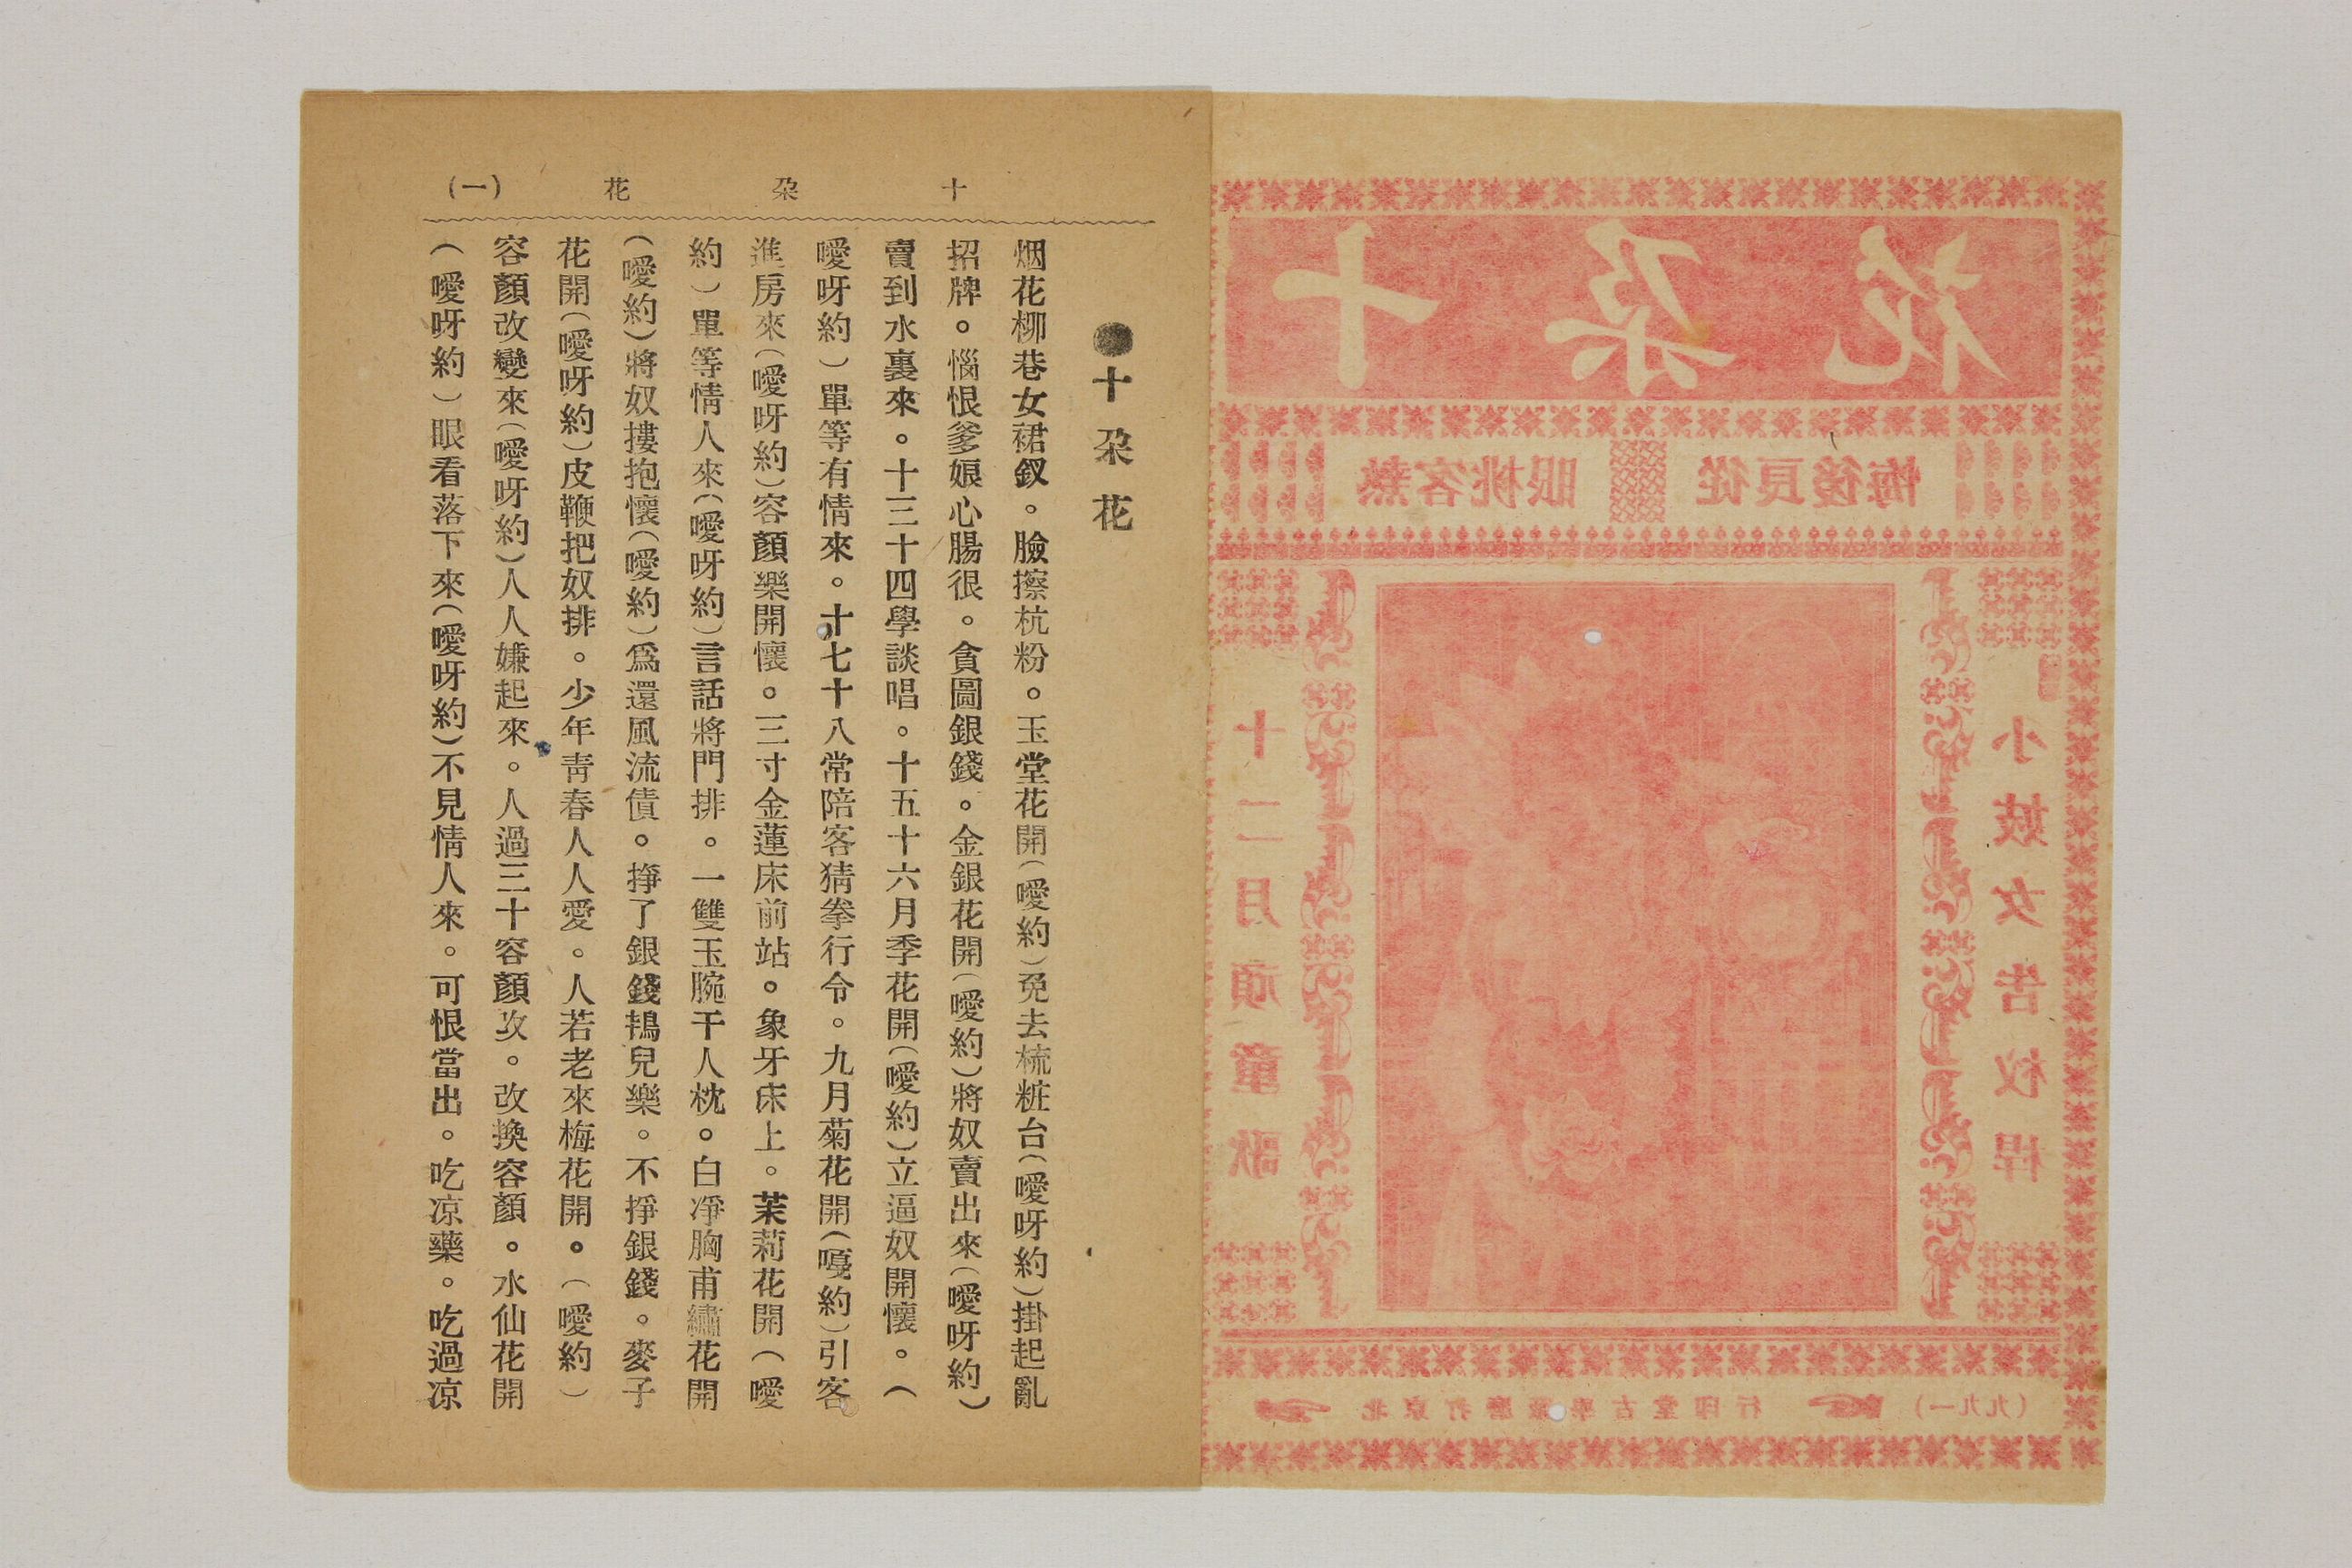 十朶花
從良後悔
熱客挑眼
小妓女告杈桿
十二月頑童歌
北京打磨廠學古堂印行
(一九九)
十朶花 (一)
●十朶花
烟花柳巷女裙釵。臉擦杭粉。玉堂花開(噯約)免去梳粧台(噯呀約)掛起亂
招牌。惱恨爹娘心腸很。貪圖銀錢。金銀花開(噯約)將奴賣出來(噯呀約)
賣到水裏來。十三十四學談唱。十五十六月季花開(噯約)立逼奴開懷。(
噯呀約)單等有情來。十七十八常陪客猜拳行令。九月菊花開(嗄約)引客
進房來(噯呀約)容顏樂開懷。三寸金蓮床前站。象牙床上。茉莉花開(噯
約)單等情人來(噯呀約)言話將門排。一雙玉腕干人枕。白凈胸甫繡花開
(噯約)將奴摟抱懷(噯約)爲還風流債。掙了銀錢鴇兒樂。不掙銀錢。麥子
花開(噯呀約)皮鞭把奴排。少年靑春人人愛。人若老來梅花開。(噯約)
容顏改變來(噯呀約)人人嫌起來。人過三十容顏改。改換容顏。水仙花開
(噯呀約)眼看落下來(噯呀約)不見情人來。可恨當出。吃凉藥。吃過凉